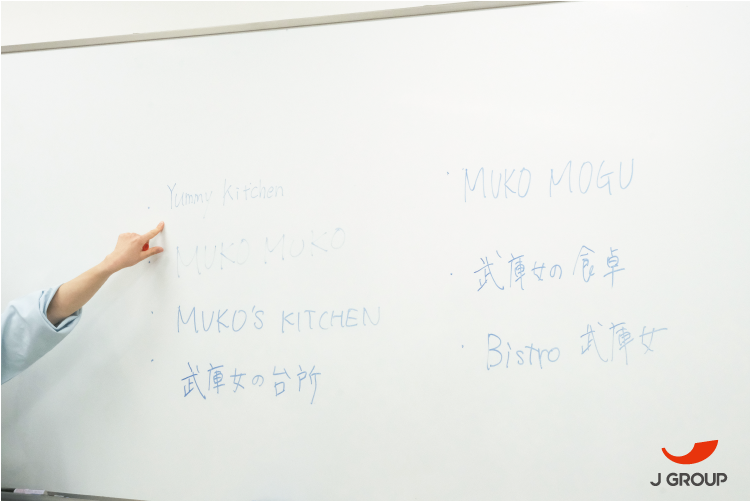 ・Yummy Kitchen
・MUKO MUKO
・MUKO'S KITCHEN
・武庫女の台所
・MUKO MOGU
・武庫女の食卓
・Bistro 武庫女
J GROUP